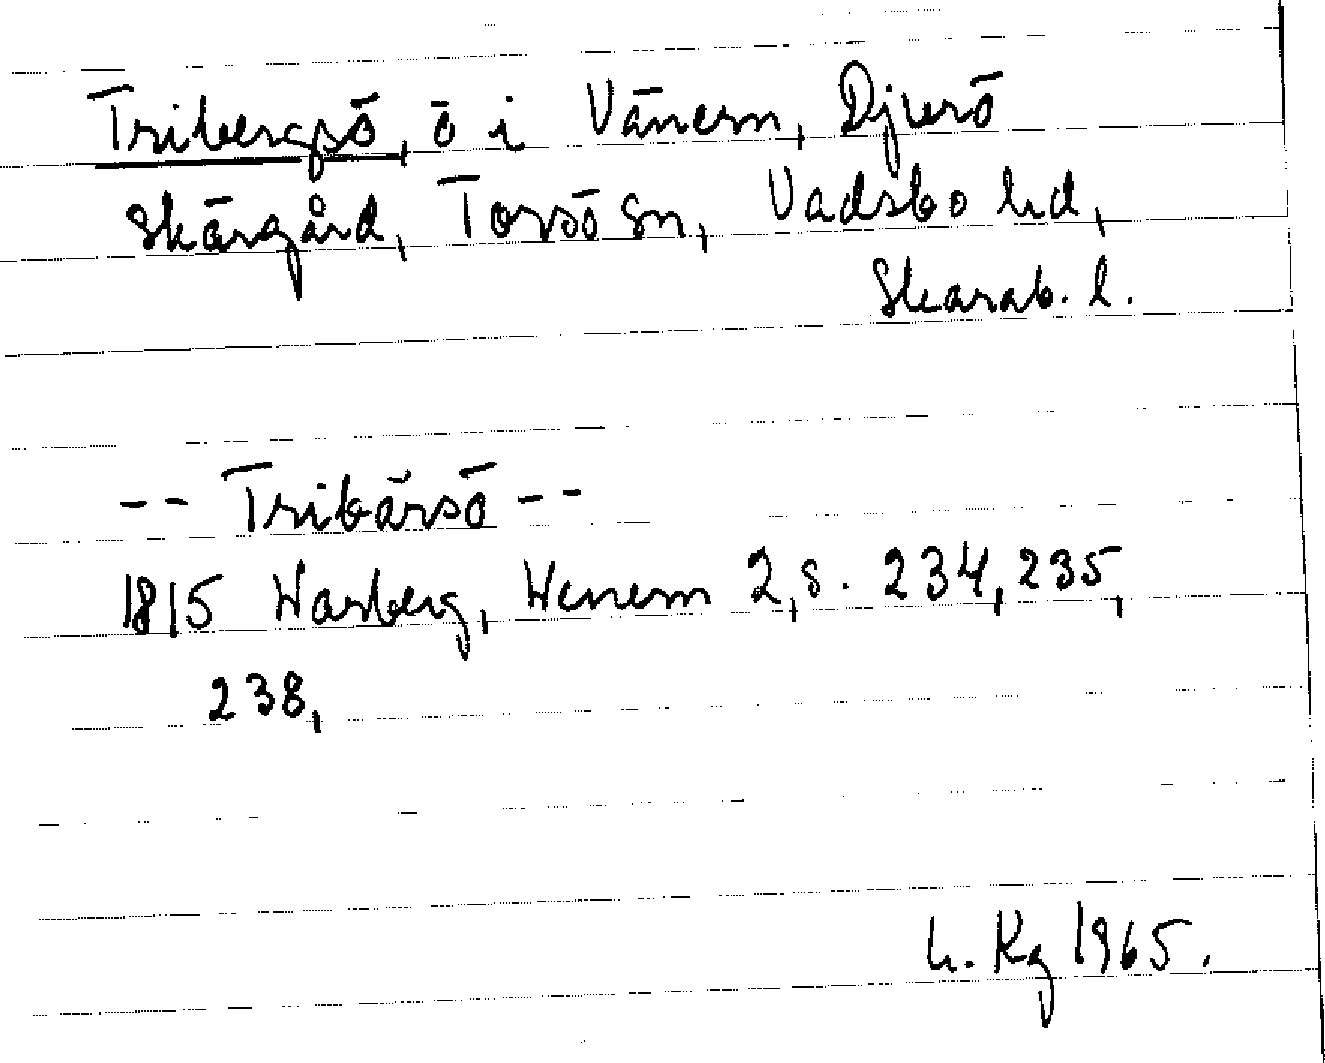 Tribergsö, ö i Vänern, Djurö
skärgård, Torsö sn, Vadsbo hd,
Skarab. l.
-- Tribärsö --
1815 Warberg, Wenern 2, s. 234, 235,
238,
L. Kg 1965.